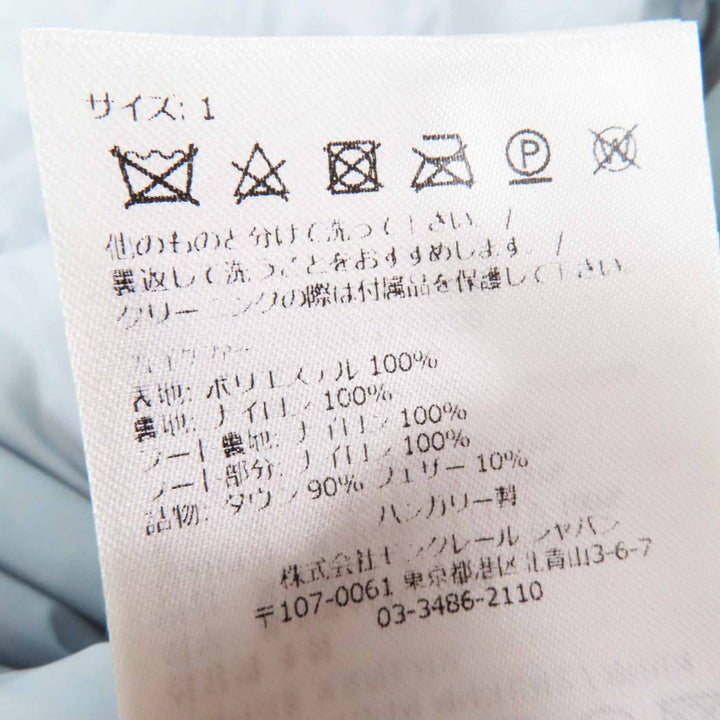 サイズ: 1
P
W
他のものと分けて洗って下さい. /
裏返して洗うことをおすすめします. /
クリーニングの際は付属品を保護して下さい
表地: ポリエステル 100%
裏地: ナイロン 100%
フード裏地: ナイロン 100%
フード部分: ナイロン 100%
品物: ダウン 90% フェザー 10%
ハンガリー製
株式会社モンクレール ジャパン
〒107-0061 東京都港区北青山3-6-7
03-3486-2110